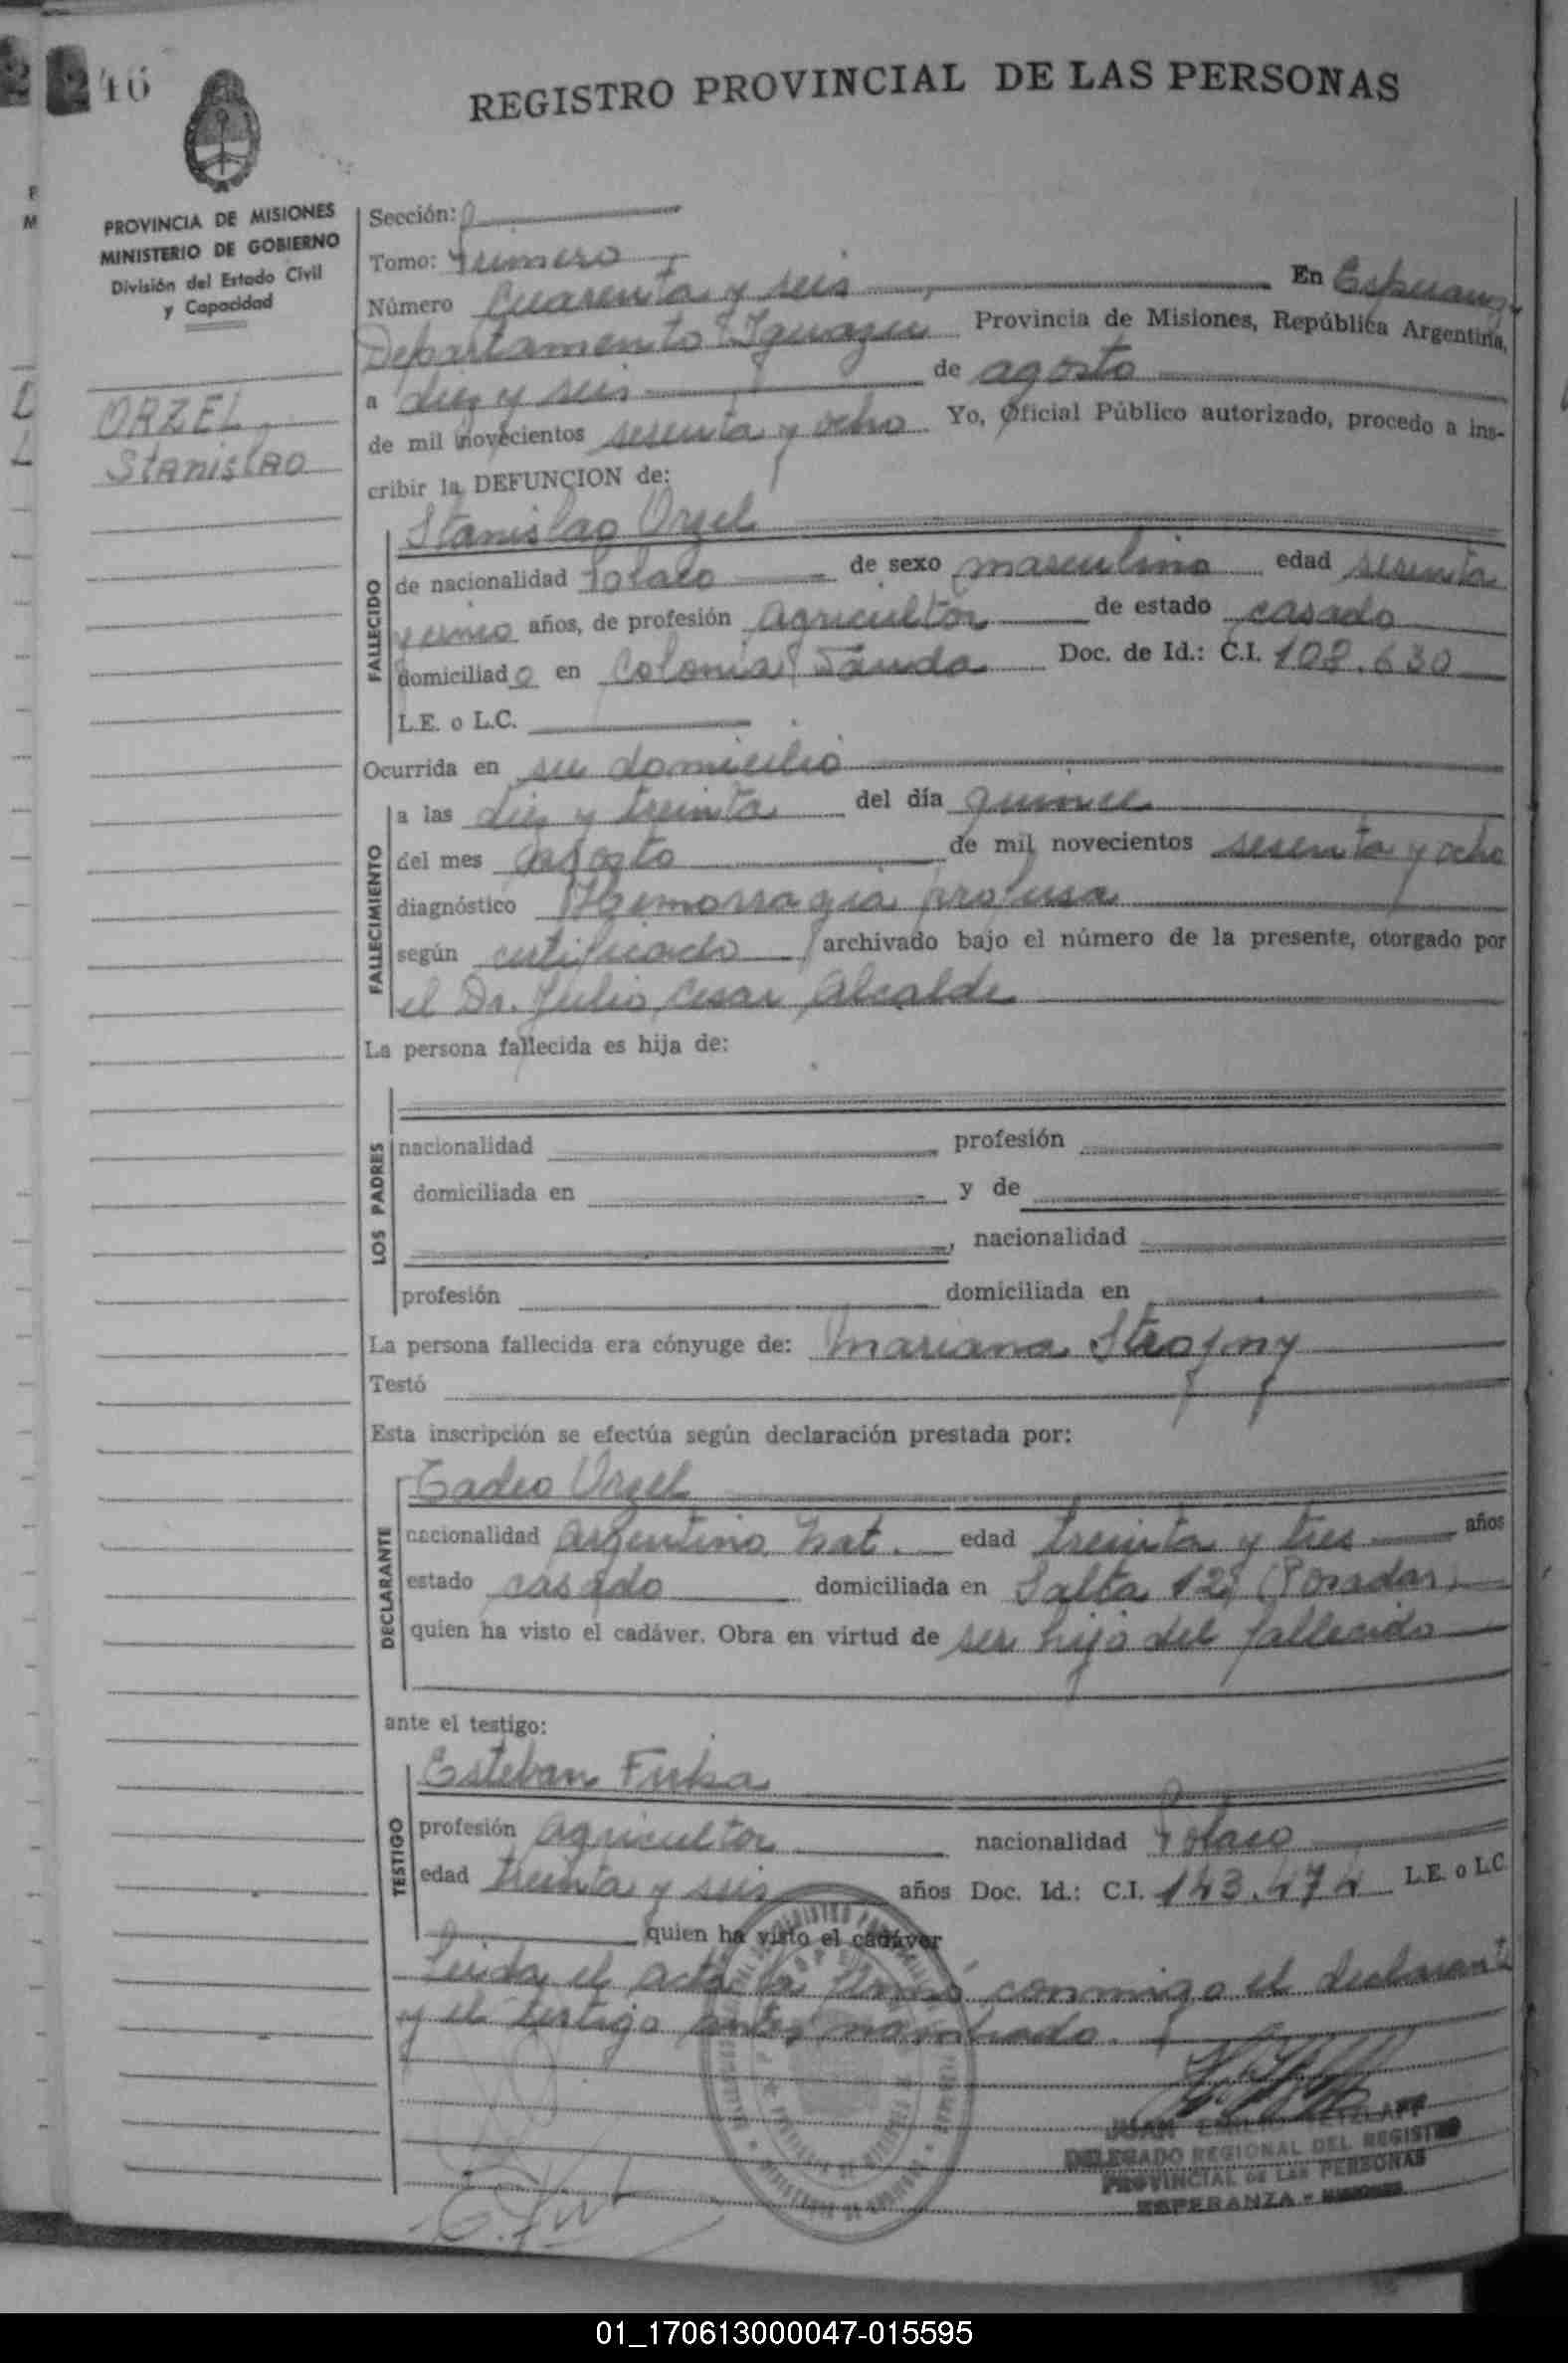 46
REGISTRO PROVINCIAL DE LAS PERSONAS
PROVINCIA DE MISIONES
MINISTERIO DE GOBIERNO
División del Estado Civil
y Capacidad
ORZEL
Stanislao
Sección:
Tomo: Primero
Número Cuarenta y seis En Esperanza
Departamento Iguazu Provincia de Misiones, República Argentina,
a diez y seis de agosto
de mil novecientos sesenta y ocho Yo, Oficial Público autorizado, procedo a ins-
cribir la DEFUNCION de:
Stanislao Orzel
FALLECIDO
de nacionalidad Polaco de sexo masculino edad sesenta
y uno años, de profesión Agricultor de estado casado
domiciliado en Colonia Doc. de Id.: C.I. 108.630
L.E. o L.C.
Ocurrida en su domicilio
FALLECIMIENTO
a las diez y treinta del día quince
del mes Agosto de mil novecientos sesenta y ocho
diagnóstico Hemorragia profusa
según certificado archivado bajo el número de la presente, otorgado por
el Dr. Julio Cesar Alcalde
La persona fallecida es hija de:
LOS PADRES
nacionalidad profesión
domiciliada en y de
, nacionalidad
profesión domiciliada en
La persona fallecida era cónyuge de: Mariana Strojny
Testó
Esta inscripción se efectúa según declaración prestada por:
DECLARANTE
Tadeo Orzel
nacionalidad Argentino Nat. edad treinta y tres años
estado casado domiciliada en Salta 12 (Posadas)
quien ha visto el cadáver. Obra en virtud de ser hijo del fallecido
ante el testigo:
TESTIGO
Esteban
profesión Agricultor nacionalidad Polaco
edad treinta y seis años Doc. Id.: C.I. 143.474 L.E. o L.C
quien ha visto el cadáver
Leida el acta la firmó conmigo el declarante
y el testigo antes nombrado.
JUAN EMILIO RETZLAFF
DELEGADO REGIONAL DEL REGISTRO
PROVINCIAL DE LAS PERSONAS
ESPERANZA - MISIONES
01_170613000047-015595